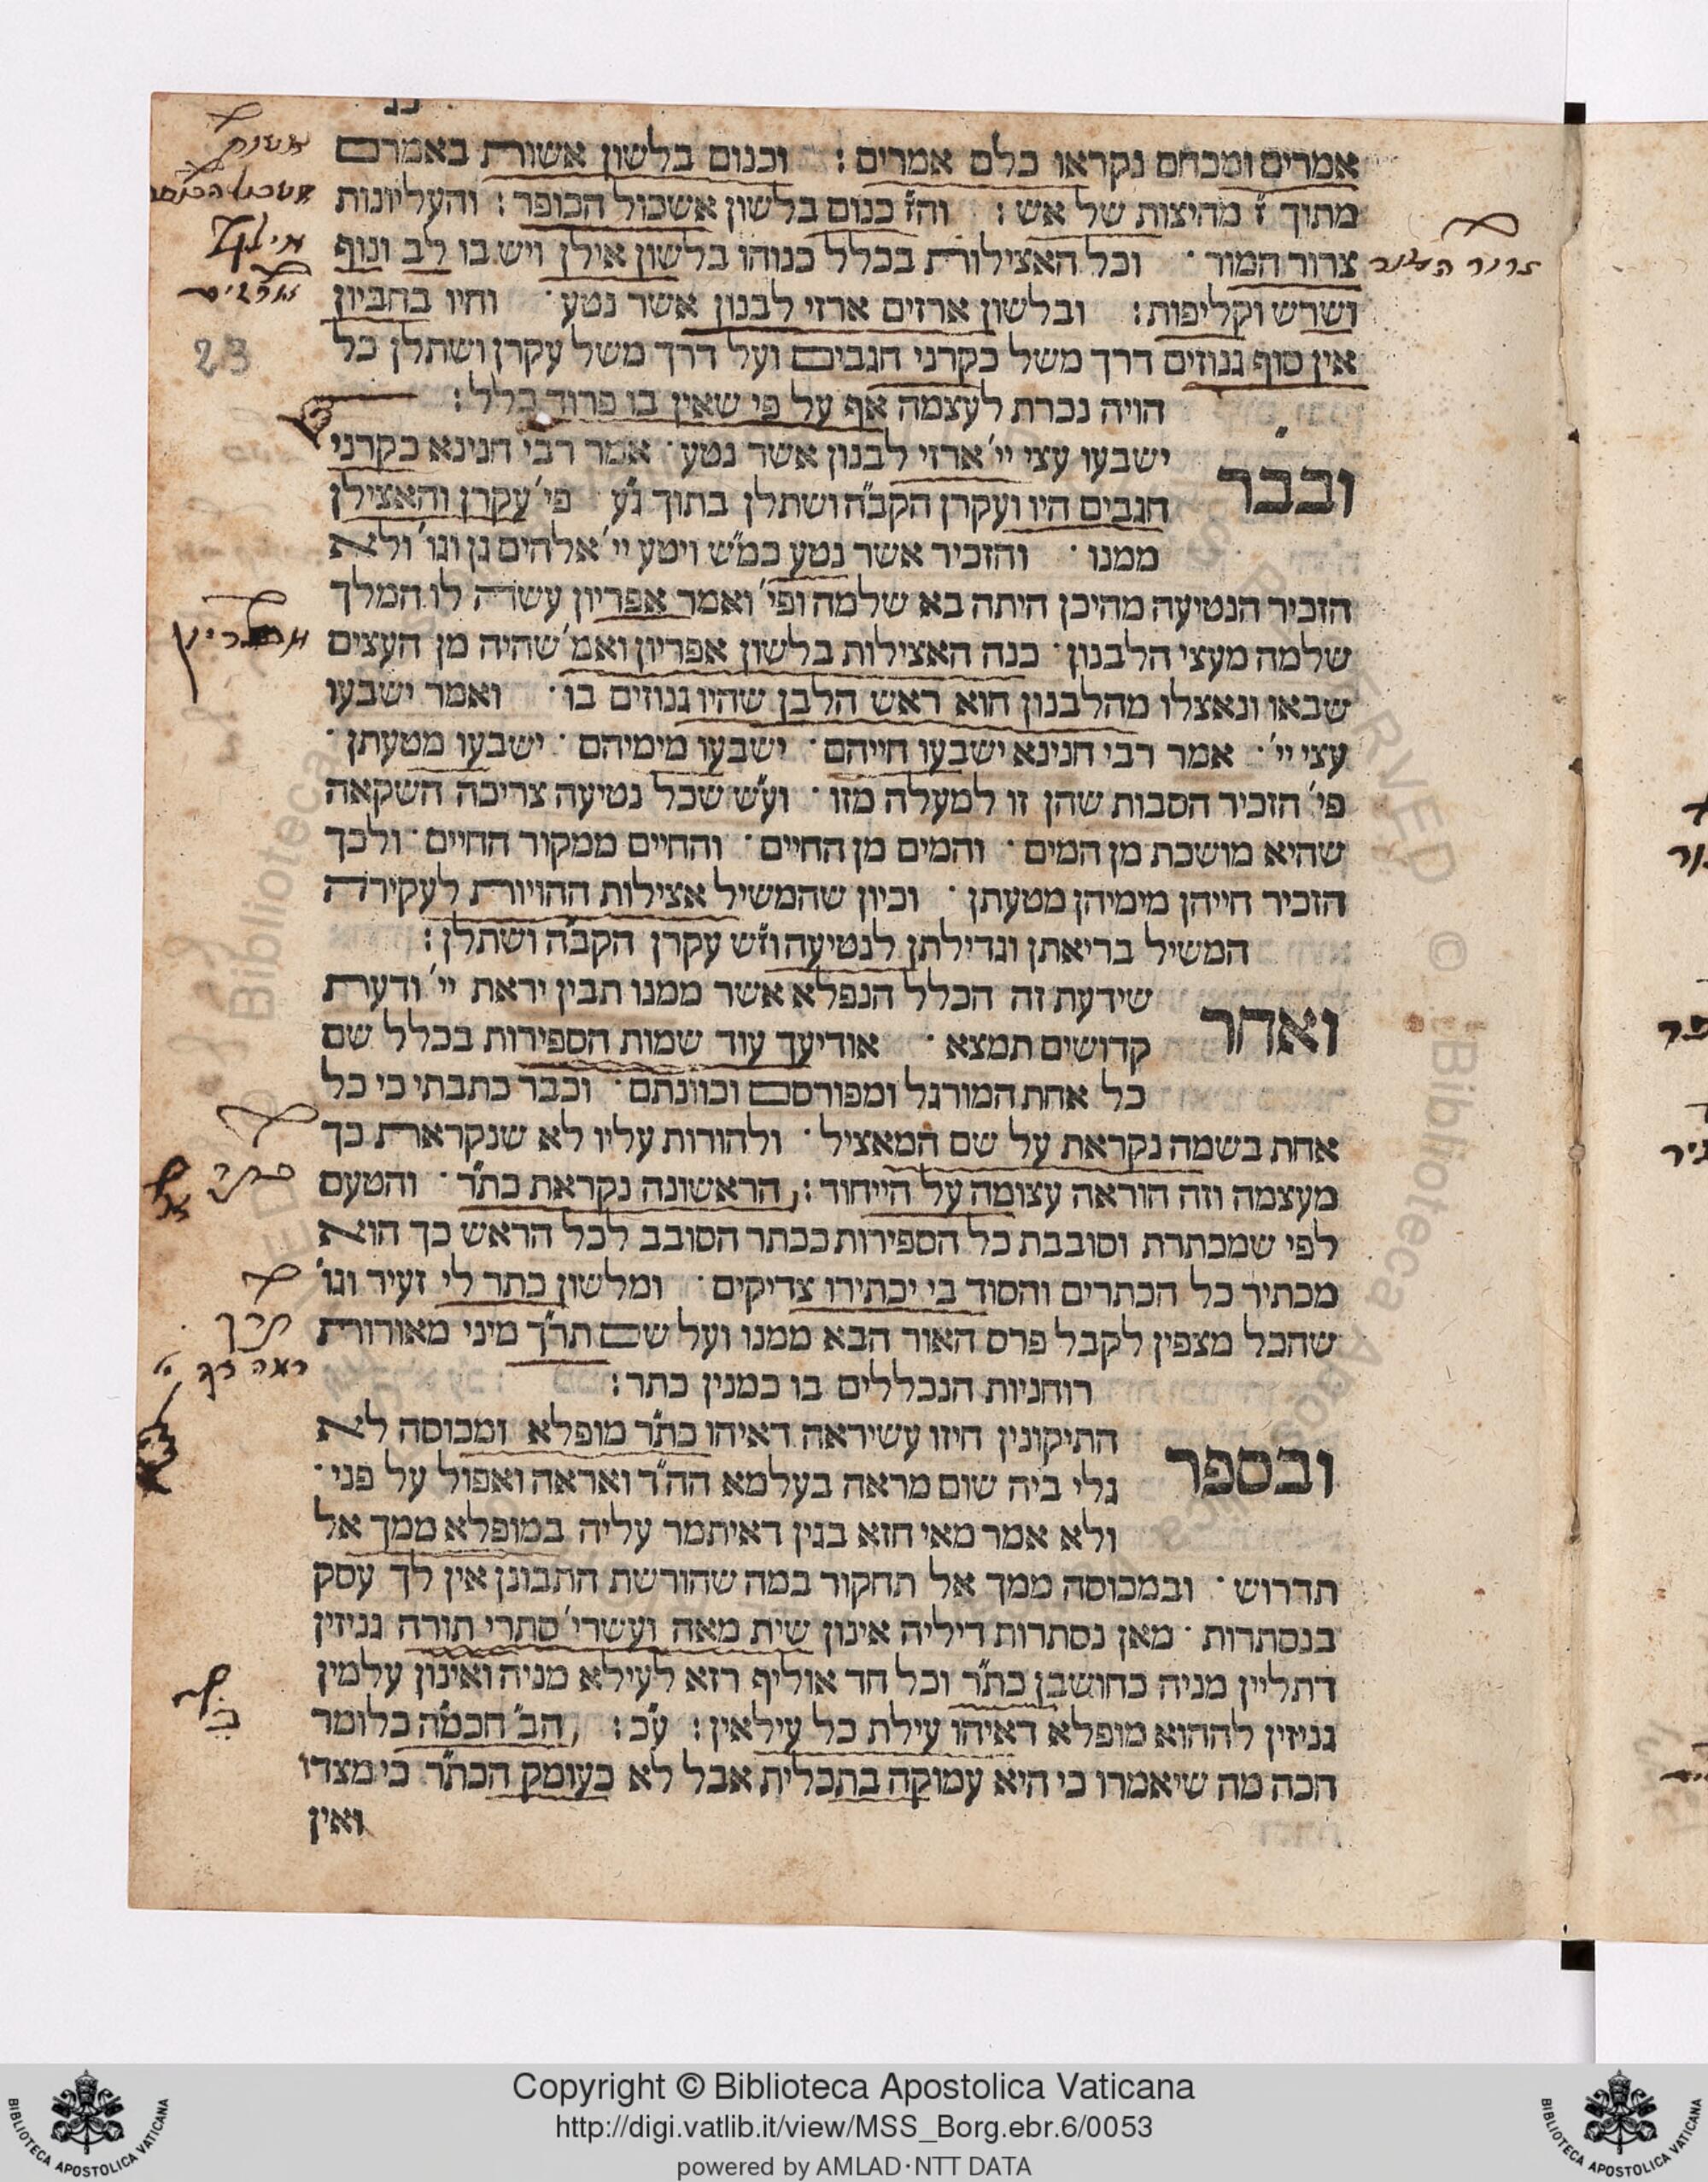 אמרים ומכחם נקראו כלם אמרים : וכנום בלשון אשורת באמרם
מתוך ז' מהיצות של אש : והז' כנום בלשון אשכול הכופר : והעליונות
צרור המור · וכל האצילות בכלל כנוהו בלשון אילן ויש בו לב ונוף
ושרש וקליפות : ובלשון ארזים ארזי לבנון אשר נטע · והיו בחביון
אין סוף גנוזים דרך משל כקרני חגבים ועל דרך משל עקרן ושתלן כל
הויה נכרת לעצמה אף על פי שאין בו פרוד כלל :
ובבר ישבעו עצי יי' ארזי לבנון אשר נטע · אמר רבי חנינא כקרני
חגבים היו ועקרן הקב"ה ושתלן בתוך ג"ע פי' עקרן והאצילן
ממנו · והזכיר אשר נטע כמ"ש ויטע יי' אלהים גן וגו' ולא
הזכיר הנטיעה מהיכן היתה בא שלמה ופי' ואמר אפריון עשה לו המלך
שלמה מעצי הלבנון · כנה האצילות בלשון אפריון ואמ' שהיה מן העצים
שבאו ונאצלו מהלבנון הוא ראש הלבן שהיו גנוזים בו · ואמר ישבעו
עצי יי' · אמר רבי חנינא ישבעו חייהם · ישבעו מימיהם · ישבעו מטעתן ·
פי' הזכיר הסבות שהן זו למעלה מזו · וע"ש שכל נטיעה צריכה השקאה
שהיא מושכת מן המים · והמים מן החיים · והחיים ממקור החיים · ולכך
הזכיר חייהן מימיהן מטעתן · וכיון שהמשיל אצילות ההויות לעקירה
המשיל בריאתן וגדילתן לנטיעה וז"ש עקרן הקב"ה ושתלן :
ואחר שידעת זה הכלל הנפלא אשר ממנו תבין יראת יי' ודעת
קדושים תמצא · אודיעך עוד שמות הספירות בכלל שם
כל אחת המורגל ומפורסם וכוונתם · וכבר כתבתי כי כל
אחת בשמה נקראת על שם המאציל · ולהורות עליו לא שנקראת כך
מעצמה וזה הוראה עצומה על הייחוד : הראשונה נקראת כת"ר · והטעם
לפי שמכתרת וסובבת כל הספירות ככתר הסובב לכל הראש כך הוא
מכתיר כל הכתרים והסוד בי יכתירו צדיקים · ומלשון כתר לי זעיר וגו'
שהכל מצפין לקבל פרס האור הבא ממנו ועל שם תר"ך מיני מאורות
רוחניות הנכללים בו כמנין כתר :
ובספר התיקונין חיזו עשיראה דאיהו כת"ר מופלא ומכוסה לא
גלי ביה שום מראה בעלמא הה"ד ואראה ואפול על פני ·
ולא אמר מאי חזא בגין דאיתמר עליה במופלא ממך אל
תדרוש · ובמכוסה ממך אל תחקור במה שהורשת התבונן אין לך עסק
בנסתרות · מאן נסתרות דיליה אינון שית מאה ועשרי' סתרי תורה גניזין
דתליין מניה כחושבן כת"ר וכל חד אוליף רזא לעילא מניה ואינון עלמין
גניזין לההוא מופלא דאיהו עילת כל עילאין : ע"כ : הב' חכמ"ה כלומר
הכה מה שיאמרו כי היא עמוקה בתכלית אבל לא כעומק הכת"ר כי מצדו
ואין
צרור המור
אפריון
כתר
תרך
23
Copyright © Biblioteca Apostolica Vaticana
http://digi.vatlib.it/view/MSS_Borg.ebr.6/0053
powered by AMLAD·NTT DATA
BIBLIOTECA APOSTOLICA VATICANA
BIBLIOTECA APOSTOLICA VATICANA